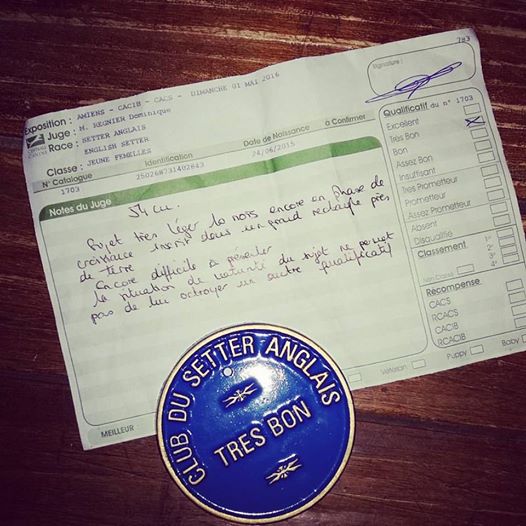 783
Signature :
Exposition : AMIENS - CACIB - CACS - DIMANCHE 01 MAI 2016
Juge : M. REGNIER Dominique
Race : SETTER ANGLAIS
ENGLISH SETTER
Classe : JEUNE FEMELLES
N° Catalogue Identification Date de Naissance à Confirmer
1703 250268731402643 24/06/2015
Notes du Juge
54 cm.
Sujet très léger 10 mois encore en phase de
croissance inscrit dans un grand rectangle près
de terre
Encore difficile à présenter
La situation de maturité du sujet ne permet
pas de lui octroyer un autre qualificatif
MEILLEUR
Qualificatif du n° 1703
Excellent
Très Bon
Bon
Assez Bon
Insuffisant
Très Prometteur
Prometteur
Assez Prometteur
Absent
Disqualifié
Classement
1er
2e
3e
4e
Non Classé
Récompense
CACS
RCACS
CACIB
RCACIB
Vétéran
Puppy
Baby
CLUB DU SETTER ANGLAIS
TRES BON